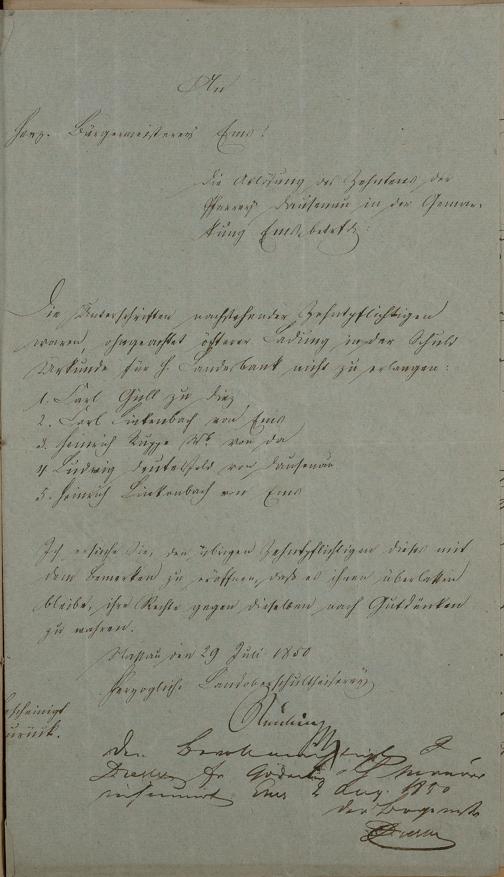 An
Herz. Bürgermeisterei Ems!
die Ablösung des Zehntens der
Pfarrei Dausenau in der Gemar-
kung Ems betrf:
Die Unterschriften nachstehender Zehntpflichtigen
waren, ohngeachtet öfterer Ladung in der Schuld
Urkunde für H. Landesbank nicht zu erlangen:
1. Carl Gull zu Diez
2. Carl Linkenbach von Ems
3. Heinrich Kuppe Wb. von da
4 Ludwig von Dausenau
5. Heinrich Linkenbach von Ems
Ich ersuche Sie, den übrigen Zehntpflichtigen dieses mit
dem Bemerken zu eröffnen, daß es ihnen überlassen
bleibe, ihre Rechte gegen dieselben nach Gutdünken
zu wahren.
Nassau den 29 Juli 1850
Herzogliche Landoberschultheiserei
bescheinigt
zurück.
Den
Ems 2 Aug. 1850
der